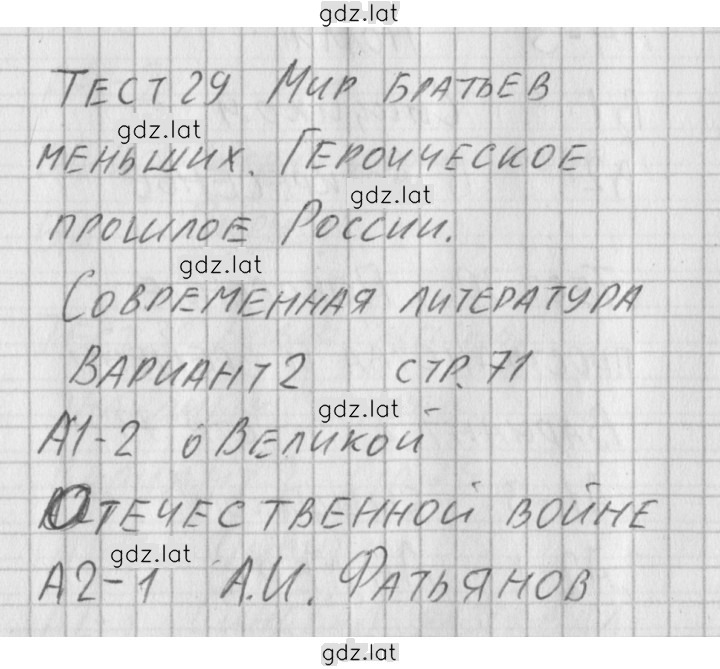 gdz.lat
Тест 29 Мир братьев
gdz.lat
меньших. Героическое
gdz.lat
прошлое России.
gdz.lat
Современная литература
Вариант 2 стр. 71
gdz.lat
А1-2 о Великой
Отечественной войне
gdz.lat
А2-1 А.И. Фатьянов
gdz.lat